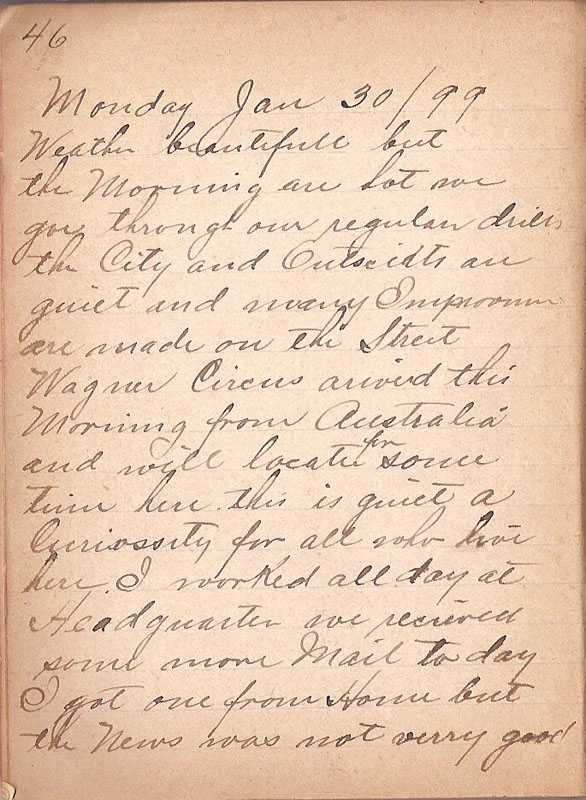 46
Monday Jan 30/99
Weather beautifull but
the Morning are hot we
goe through our regular drills
the City and Outseidts are
quiet and many Improvem
are made on the Street
Wagner Circus arived this
Morning from Australia
and will locate for some
time here this is quiet a
Curiossity for all who live
here. I worked all day at
Headquarter we recieved
some more Mail to day
I got one from Home but
the News was not verry good